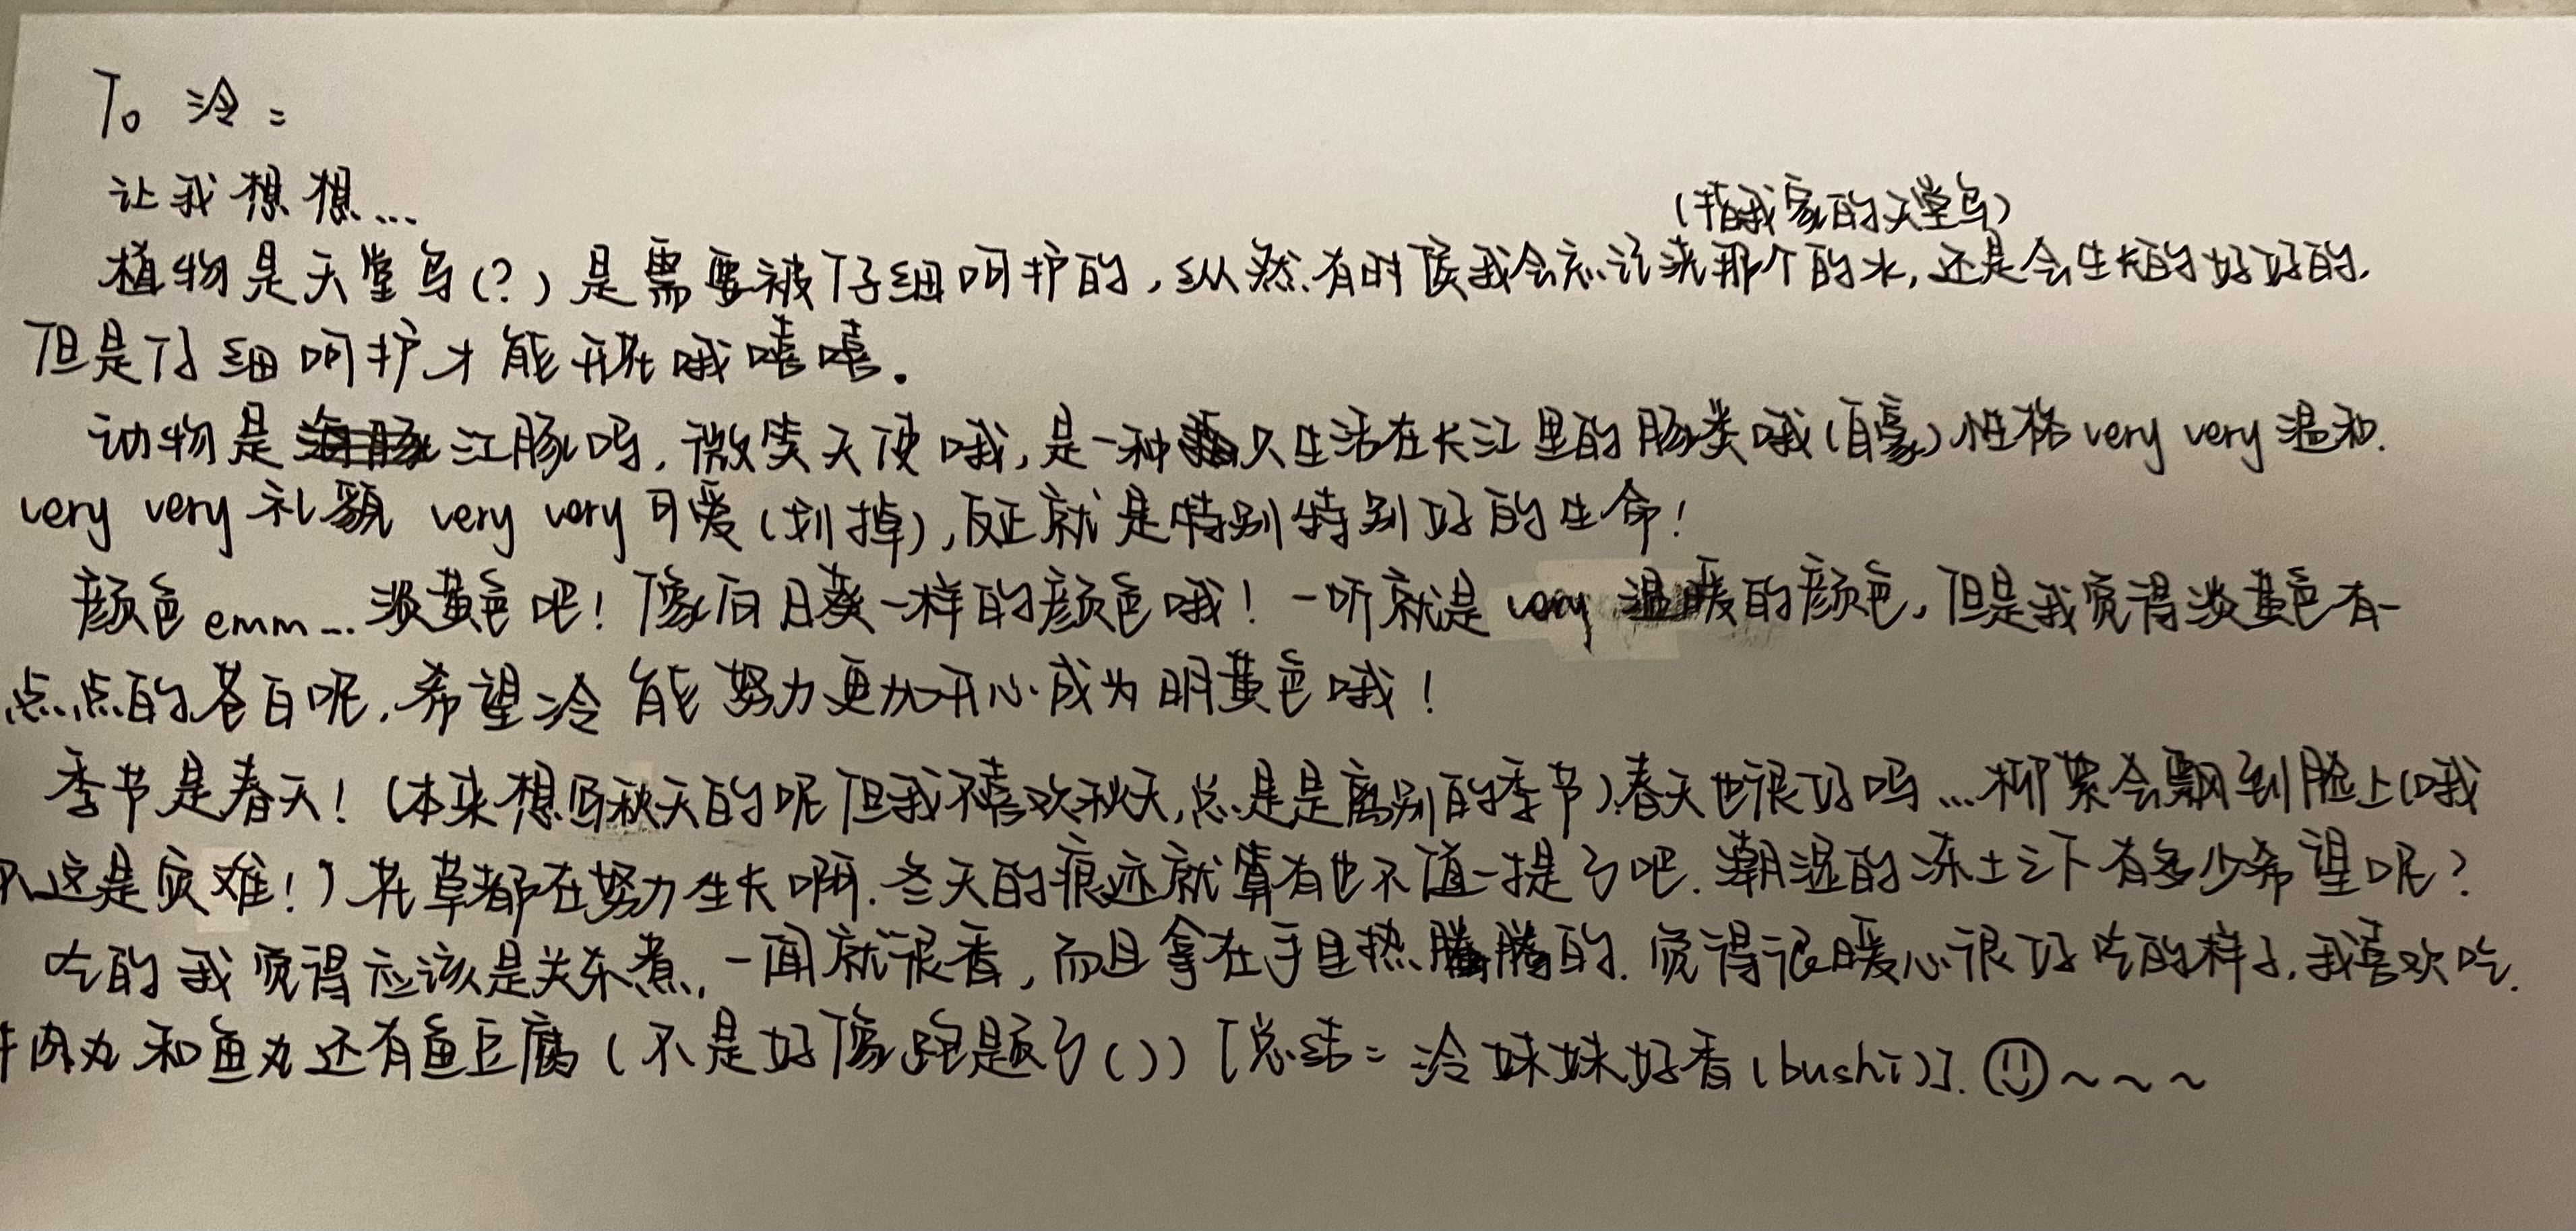 To 泠：
让我想想...
(指我家的天堂鸟)
植物是天堂鸟(?)是需要被仔细呵护的,纵然有时候我会忘记浇那个的水,还是会生长的好好的.
但是仔细呵护才能开花哦嘻嘻.
动物是江豚吗,微笑天使哦,是一种只生活在长江里的豚类哦(自豪)性格very very温和.
very very礼貌 very very可爱(划掉),反正就是特别特别好的生命!
颜色emm...淡黄色吧!像向日葵一样的颜色哦!一听就是very温暖的颜色,但是我觉得淡黄色有一
点点的苍白呢,希望泠能努力更加开心成为明黄色哦!
季节是春天!(本来想写秋天的呢但我不喜欢秋天,总是是离别的季节)春天也很好吗...柳絮会飘到脸上(哦
不这是灾难!)花草都在努力生长啊.冬天的痕迹就算有也不值一提了吧.潮湿的冻土之下有多少希望呢?
吃的我觉得应该是关东煮,一闻就很香,而且拿在手里热腾腾的.觉得很暖心很好吃的样子.我喜欢吃.
牛肉丸和鱼丸还有鱼豆腐(不是好像跑题了())[总结=泠妹妹好香(bushi)].☺~~~